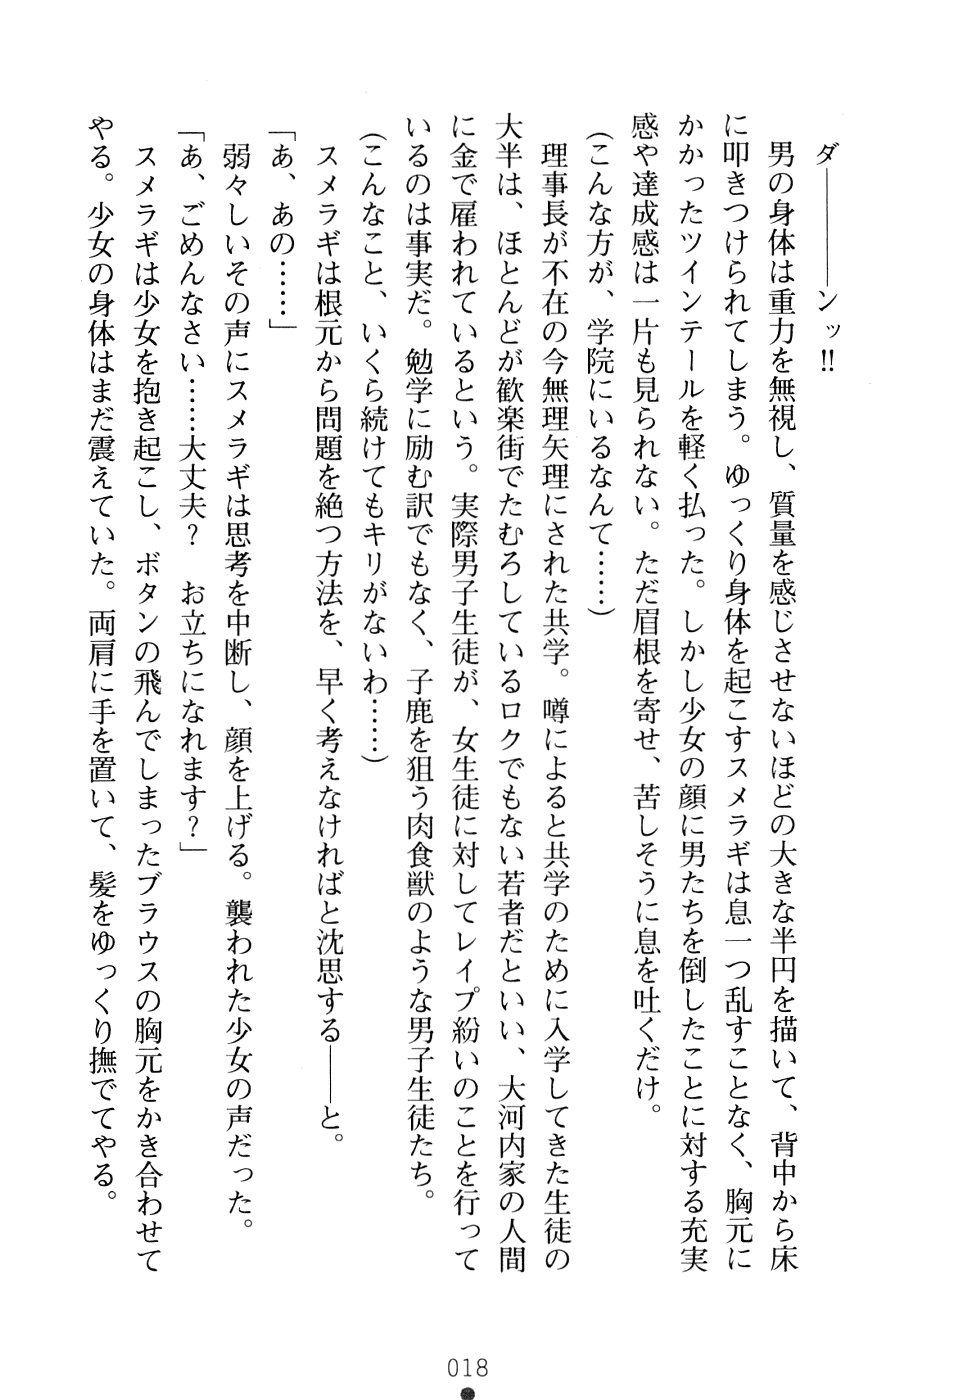 ダ――――ンッ!!
男の身体は重力を無視し、質量を感じさせないほどの大きな半円を描いて、背中から床
に叩きつけられてしまう。ゆっくり身体を起こすスメラギは息一つ乱すことなく、胸元に
かかったツインテールを軽く払った。しかし少女の顔に男たちを倒したことに対する充実
感や達成感は一片も見られない。ただ眉根を寄せ、苦しそうに息を吐くだけ。
(こんな方が、学院にいるなんて……)
理事長が不在の今無理矢理にされた共学。噂によると共学のために入学してきた生徒の
大半は、ほとんどが歓楽街でたむろしているロクでもない若者だといい、大河内家の人間
に金で雇われているという。実際男子生徒が、女生徒に対してレイプ紛いのことを行って
いるのは事実だ。勉学に励む訳でもなく、子鹿を狙う肉食獣のような男子生徒たち。
(こんなこと、いくら続けてもキリがないわ……)
スメラギは根元から問題を絶つ方法を、早く考えなければと沈思する――と。
「あ、あの……」
弱々しいその声にスメラギは思考を中断し、顔を上げる。襲われた少女の声だった。
「あ、ごめんなさい……大丈夫?　お立ちになれます?」
スメラギは少女を抱き起こし、ボタンの飛んでしまったブラウスの胸元をかき合わせて
やる。少女の身体はまだ震えていた。両肩に手を置いて、髪をゆっくり撫でてやる。
018